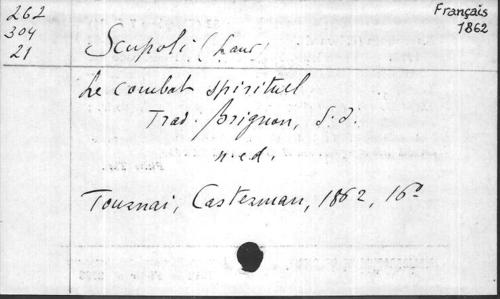 262
304
21
Français
1862
Scupoli (Laur)
Le combat spirituel
Trad. Brignon, S.J.
n.ed.
Tournai, Casterman, 1862, 16°